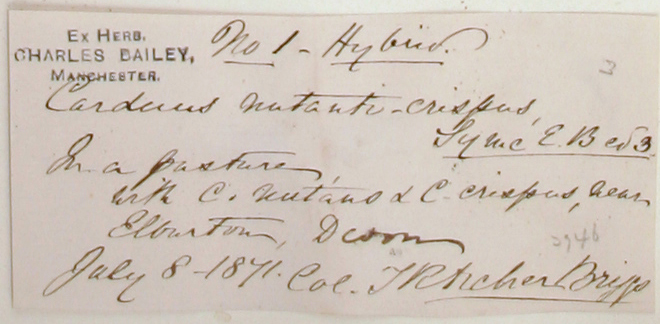 Ex Herb.
CHARLES BAILEY,
MANCHESTER.
No 1 - Hybrid.
Carduus nutanti-crispus,
Syme E. B ed 3.
In a pasture,
with C. nutans & C. crispus, near
Elburton, Devon
July 8 - 1871. Col. T R Archer Briggs
3946